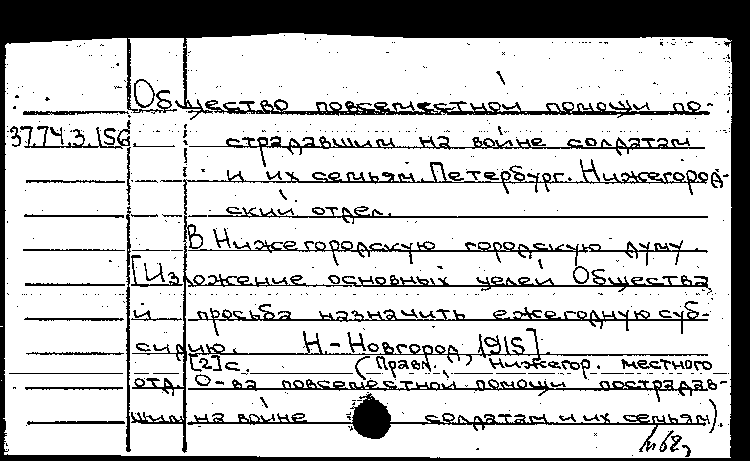 Общество повсеместной помощи по-
37.74.3.156. страдавшим на войне солдатам
и их семьям. Петербург. Нижегород-
ский отдел.
В Нижегородскую городскую думу.
[Изложение основных целей Общества
и просьба назначить ежегодную суб-
сидию. Н.-Новгород, 1915].
[2]с. (Правл. Нижегор. местного
отд. О-ва повсеместной помощи пострадав-
шим на войне солдатам и их семьям).